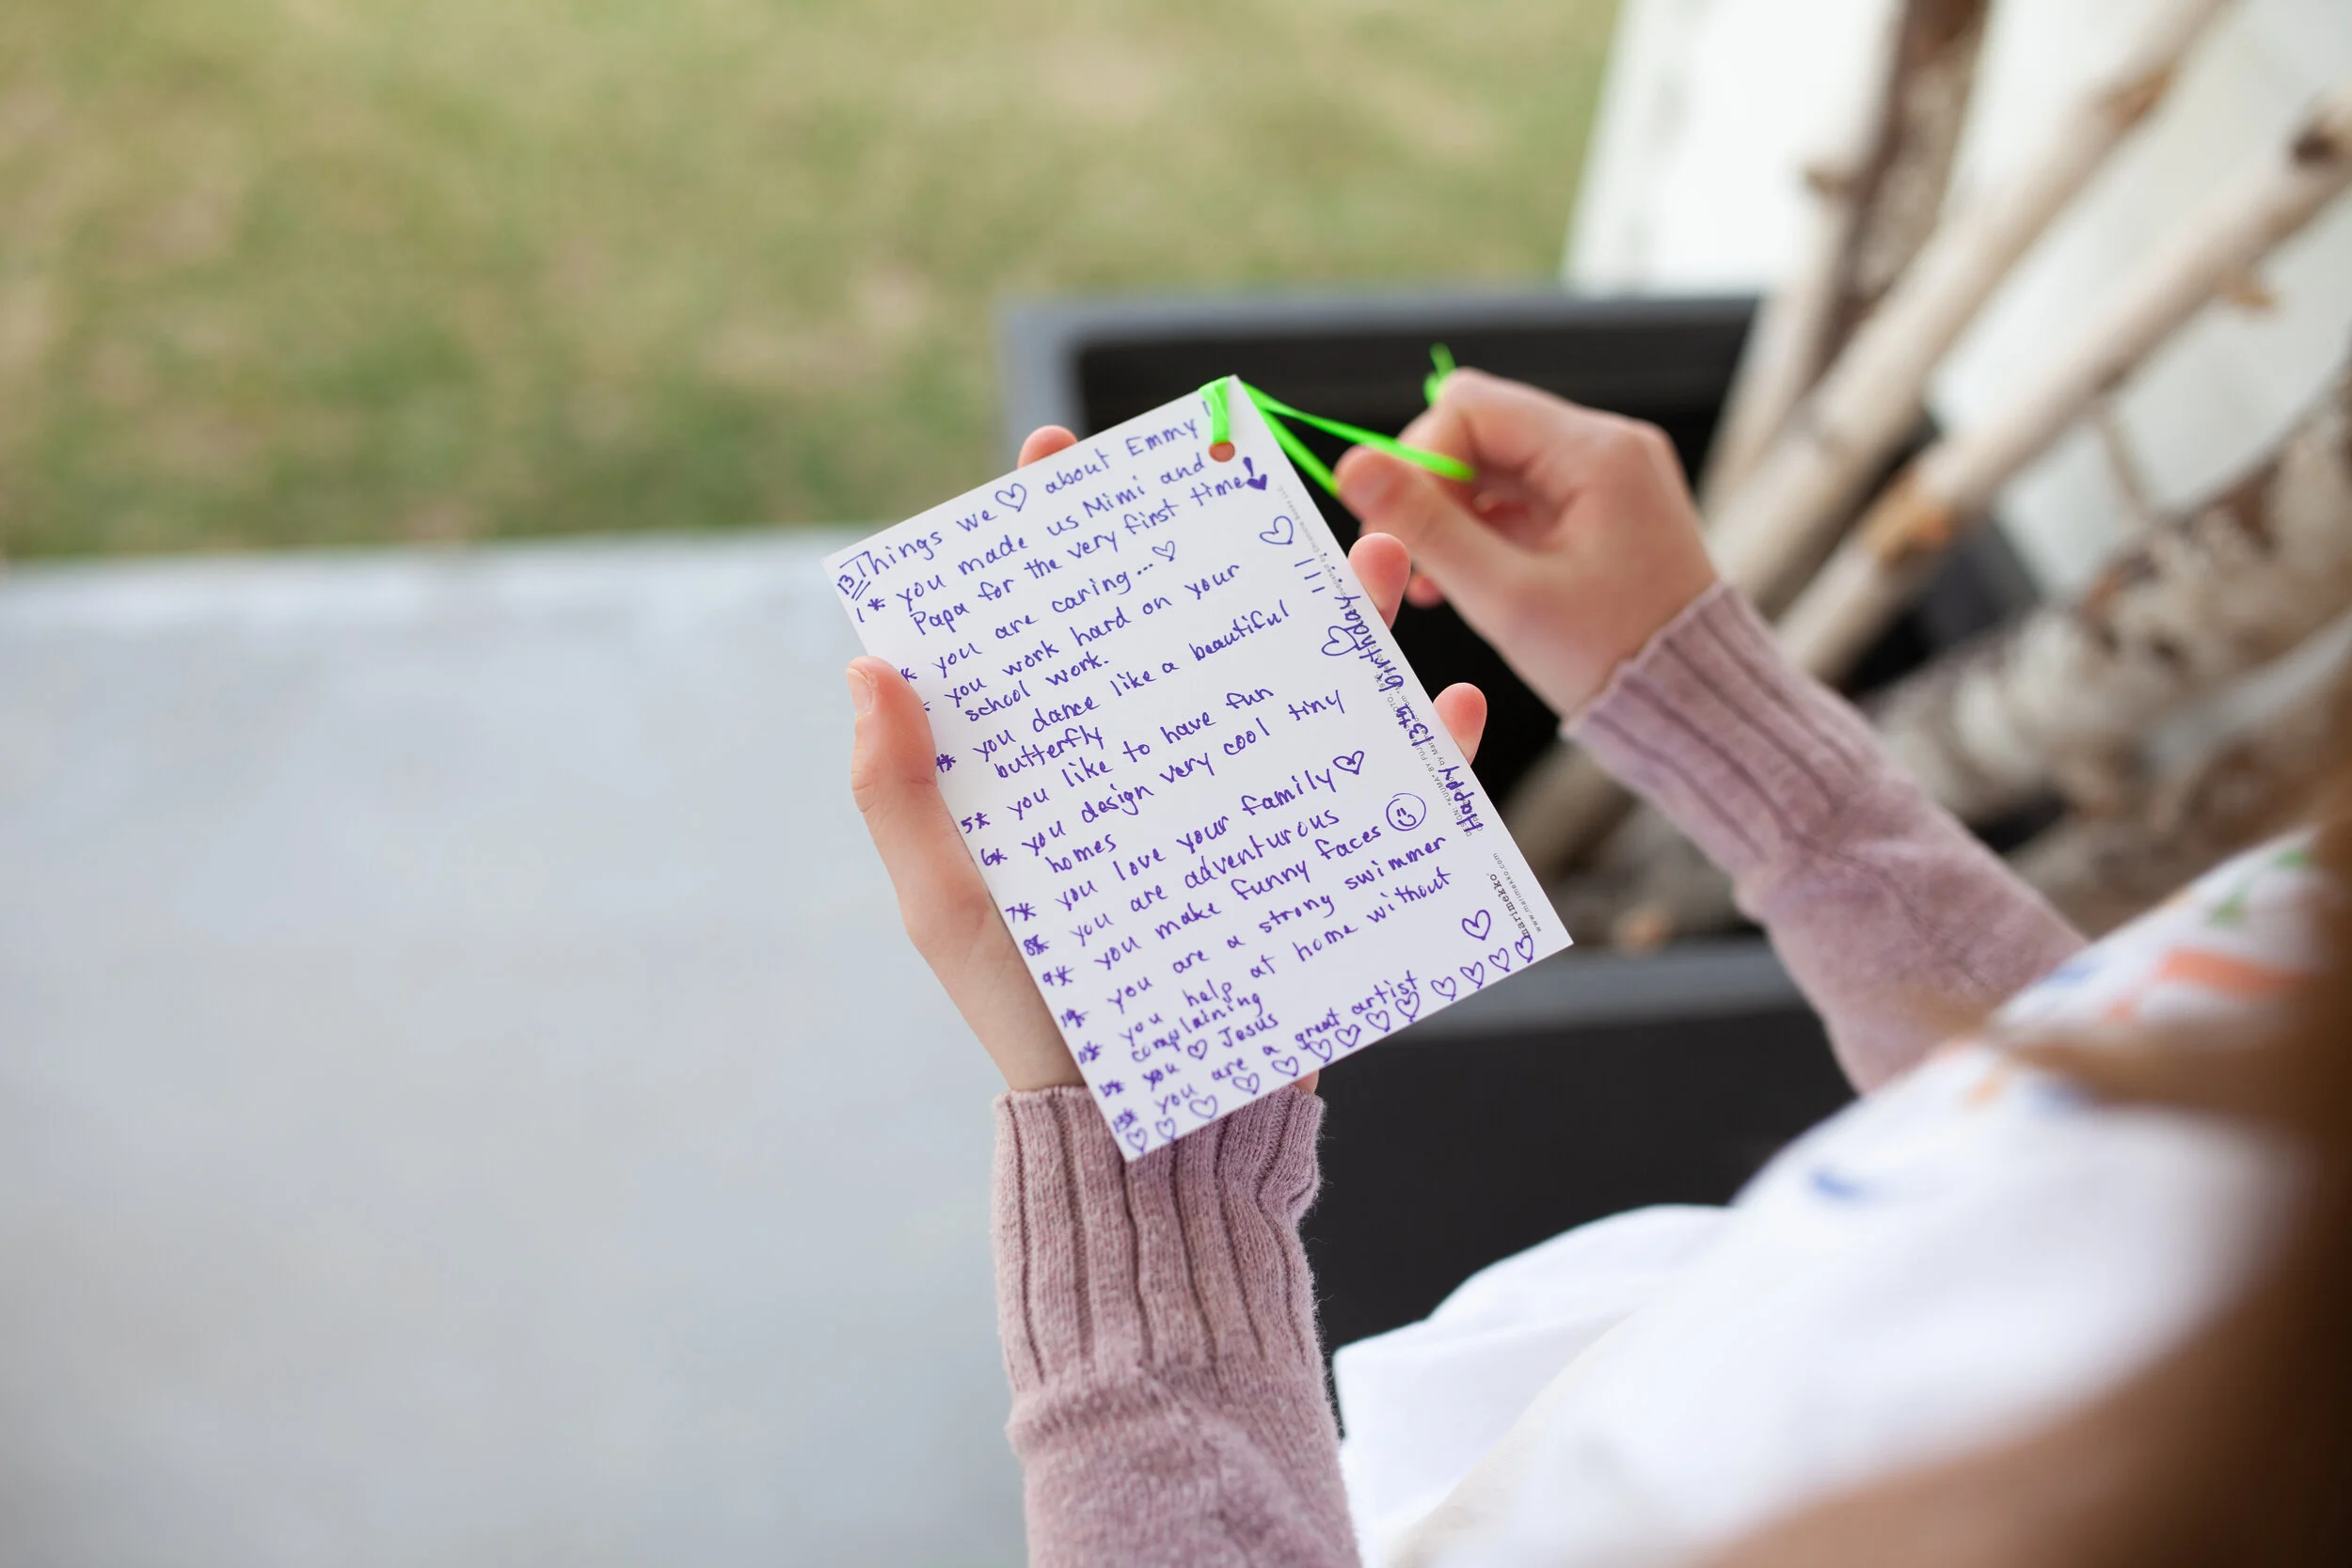 13 Things we ♡ about Emmy!
1* you made us Mimi and
Papa for the very first time!
* you are caring... ♡
* you work hard on your
school work.
4* you dance like a beautiful
butterfly
5* you like to have fun
6* you design very cool tiny
homes
7* you love your family ♡
8* you are adventurous
9* you make funny faces ☺
10* you are a strong swimmer
11* you help at home without
complaining
12* you ♡ Jesus
13* you are a great artist
Happy 13th birthday!!!
marimekko
www.marimekko.com